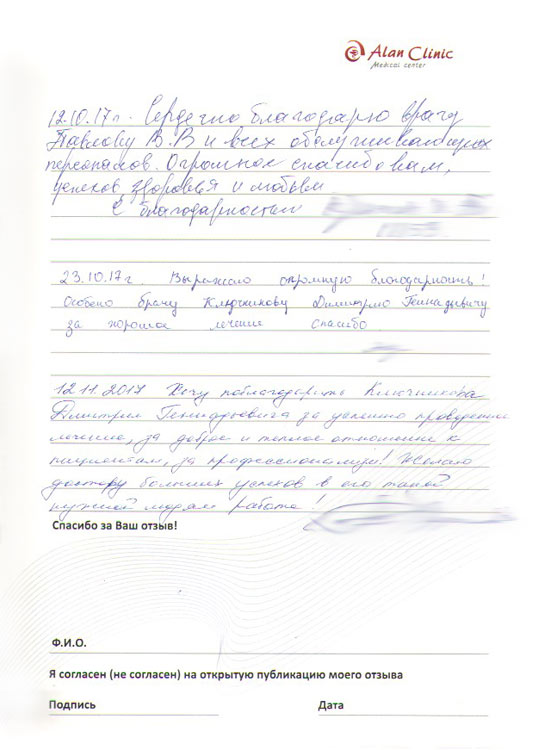 Alan Clinic
Medical center
12.10.17г. Сердечно благодарю врачу
Павлову В.В и всех обслуживающих
персоналов. Огромное спасибо вам,
успехов здоровья и любви
С благодарностью
23.10.17г Выражаю огромную благодарность!
Особено врачу Ключникову Димитрию Геннадьевичу
за хорошое лечение спасибо
12.11.2017 Хочу поблагодарить Ключникова
Дмитрия Генадьевича за успешно проведение
лечение, за доброе и теплое отношение к
пациентам, за профессионализм! Желаю
доктору больших успехов в его такой
нужной людям работе!
Спасибо за Ваш отзыв!
Ф.И.О.
Я согласен (не согласен) на открытую публикацию моего отзыва
Подпись Дата